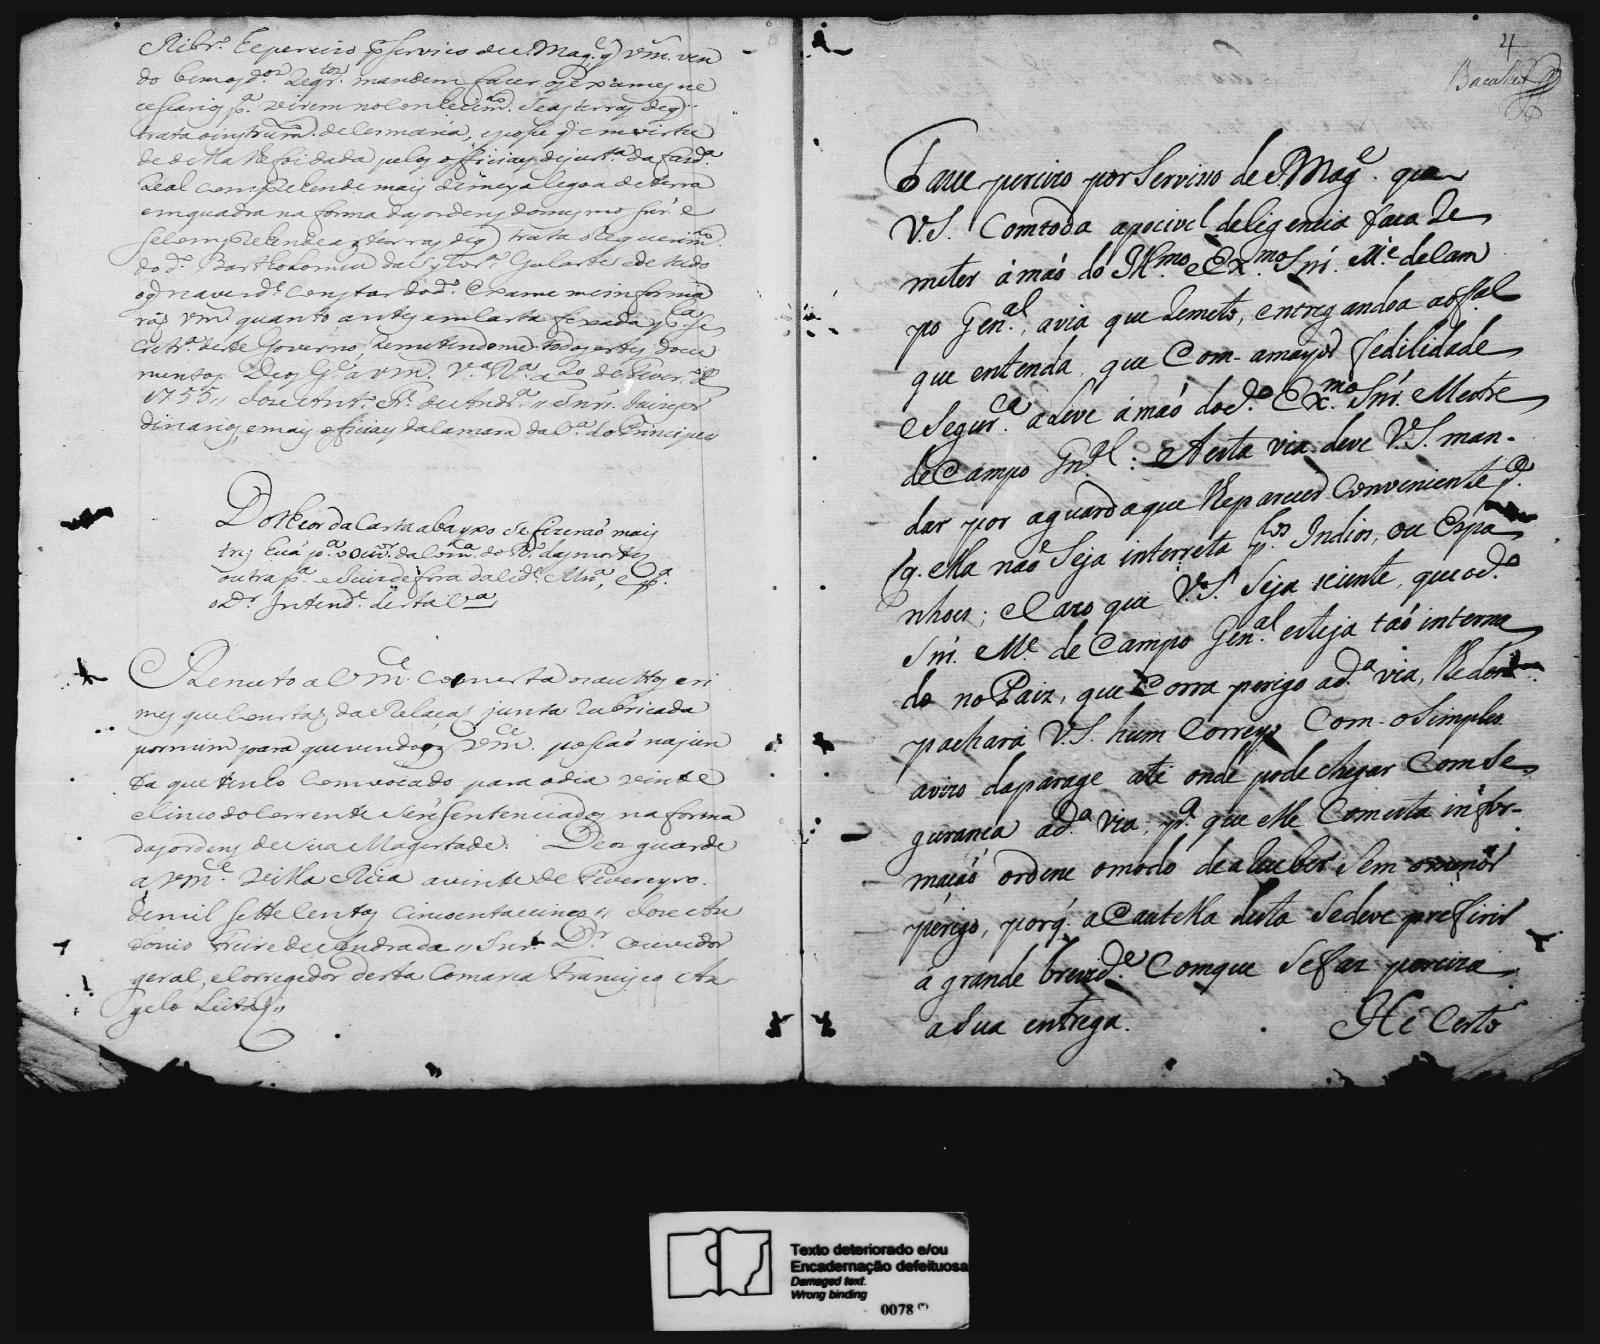 Ribr.o he perciso p.a servico de S. Mag.e q) vm. ven
do bem os d.os Regr.tos mandem facer os exames ne
cesarios p.a virem no conhecim.to se as terras de q)
trata o instrum.to de cesmaria, e posse q) em virtu
de de lla lhe foi dada pelos officiais de just.a da fazd.a
Real comprehende mais de meya legoa de terra
em quadra na forma das ordens do mesmo Snr. e
se comprehende as terras de q) trata o Requerim.to
do d.o Bartholomeu da Sylvr.a Gularte e de tudo
o q) na verd.e constar do d.o exame me informa
rás vm. quanto antes em carta fexada p.la Se
cretr.a deste Governo, Remetendome todos estes docu
mentos. Deos G.e a vm. V.a R.a a 20 de Fever.o de
1755,, Joze Ant.o Fr.e de Andr.a ,, Snrs. Juizes or
dinarios, e mais officiais da Camara da V.a do Principe
Do theor da Carta abayxo se fizerão mais
tres huã p.a o ouv.or da Com.ca do R.o das mortes
outra p.a o Juiz de fora da cid.e Mn.a, e p.a
o D.r Intend.e desta V.a
Remeto a Vm.ce com esta os auttos cri
mes que constaõ da Relaçaõ junta rubricada
por mim para que vendo os vm.ce possaõ na jun
ta que tenho convocado para o dia vinte
e cinco do corrente ser sentenciados na forma
das ordens de Sua Magestade. Deos guarde
a vm.ce Villa Rica a vinte de Fevereyro
de mil settecentos cincoenta e cinco ,, Joze An
tonio Freire de Andrada ,, Snr. D.r ouvidor
geral, e corregedor desta Comarca Francisco An
gelo Leitaõ ,,
4
Facce perciso por Serviso de S. Mag.e que
V.S. Com toda a pocivel deligencia faca Re
meter á maõ do Ill.mo e Ex.mo Snr. M.e de Cam
po Gen.al, a via que Remeto, entregandoa ao ofal
que entenda, que Com a mayor fedilidade
e Segur.ca a leve á maõ do d.o Ex.mo Snr. Mestre
de Campo Gn.al: A esta via deve V.S. man-
dar por a guarda que lhe parecer conveniente p.a
q. ella naõ Seja interreta p.los Indios, ou Espa
nhoes; e Cazo que V.S. Seja sciente, que o d.o
Snr. M.e de Campo Gen.al esteja taõ interna
do no Paiz, que Corra perigo a d.a via, lhe des
pachará V.S. hum Correyo Com o Simples
avizo da parage até onde pode chegar Com Se
gurança a d.a via, p.a que elle Com esta infor-
maçaõ ordene o modo de a Receber Sem o menor
périgo, porq. a Cautella desta Se deve prefirir
á grande brevid.e Com que Se faz perciza
a Sua entrega. Hé Certo
Texto deteriorado e/ou
Encadernação defeituosa
Damaged text.
Wrong binding
0078 (*)